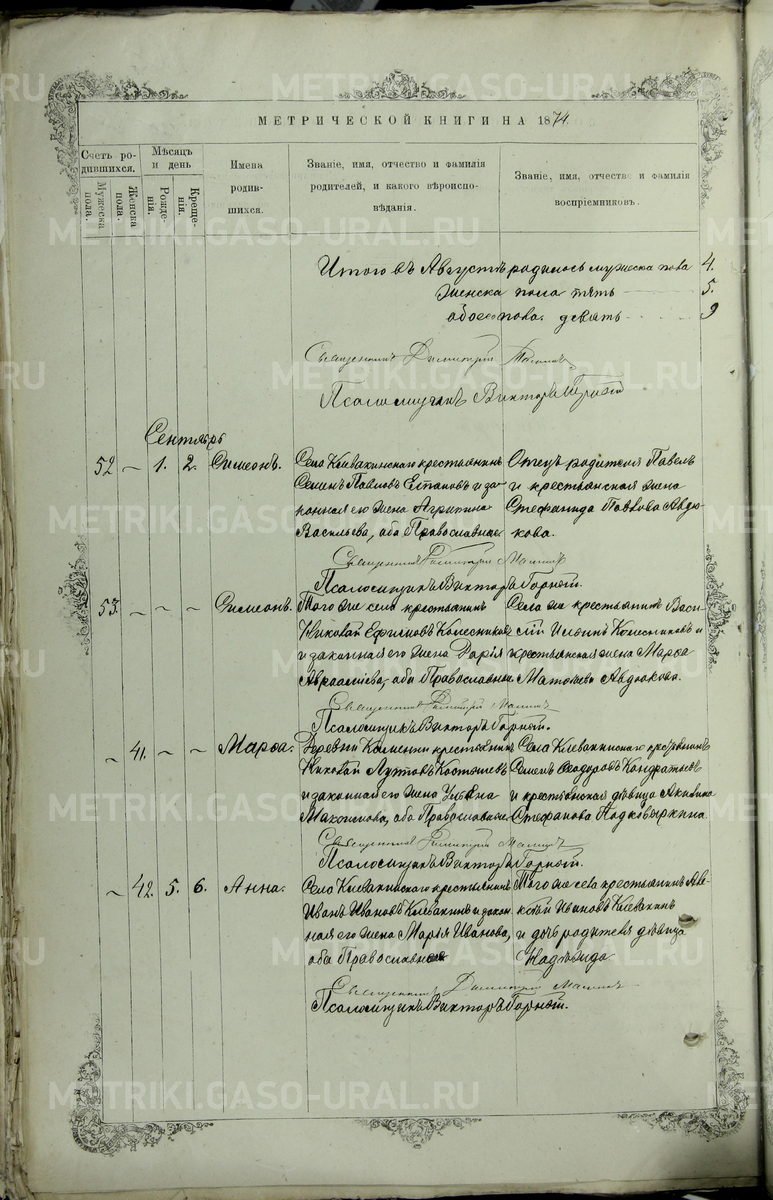 МЕТРИЧЕСКОЙ КНИГИ НА 1874.
Счетъ родившихся.
Мужеска пола.
Женска пола.
Мѣсяцъ и день
Рожденія.
Крещенія.
Имена родившихся.
Званіе, имя, отчество и фамилія родителей, и какого вѣроисповѣданія.
Званіе, имя, отчество и фамилія воспріемниковъ.
Итого въ Августѣ родилось мужеска пола 4.
Женска пола пять 5.
обоего пола девять 9
Священникъ Димитрій
Псаломщикъ Викторъ Горный
Сентябрь
52 – 1. 2. Симеонъ.
Села Клевакинскаго крестьянинъ
Семенъ Павловъ и за-
конная его жена Агрипина
Васильева, оба Православные
Отецъ родителя Павелъ
и крестьянская жена
Стефанида Павлова Авдю-
кова.
Священникъ Димитрій
Псаломщикъ Викторъ Горный.
53. – – – Симеонъ.
Того же села крестьянинъ
Николай Ефимовъ Колесниковъ
и законная его жена Дарія
Авраамієва, оба Православные
Села же крестьянинъ Васи-
лій Ильинъ Колесниковъ и
крестьянская жена Марфа
Матфіева Авдюкова.
Священникъ Димитрій
Псаломщикъ Викторъ Горный.
– 41. – – Марфа.
Деревни Каменки крестьянинъ
Николай
и законная его жена Ульяна
Максимова, оба Православные
Села Клевакинскаго крестьянинъ
Семенъ Ѳеодоровъ Кондратьевъ
и крестьянская дѣвица Акилина
Стефанова Подковыркина.
Священникъ Димитрій
Псаломщикъ Викторъ Горный.
– 42. 5. 6. Анна.
Села Клевакинскаго крестьянинъ
Иванъ Ивановъ Клевакинъ и закон-
ная его жена Марія Иванова,
оба Православные
Того же села крестьянинъ Але-
ксѣй Ивановъ Клевакинъ
и дочь родителя дѣвица
Надежда
Священникъ Димитрій
Псаломщикъ Викторъ Горный.
METRIKI.GASO-URAL.RU